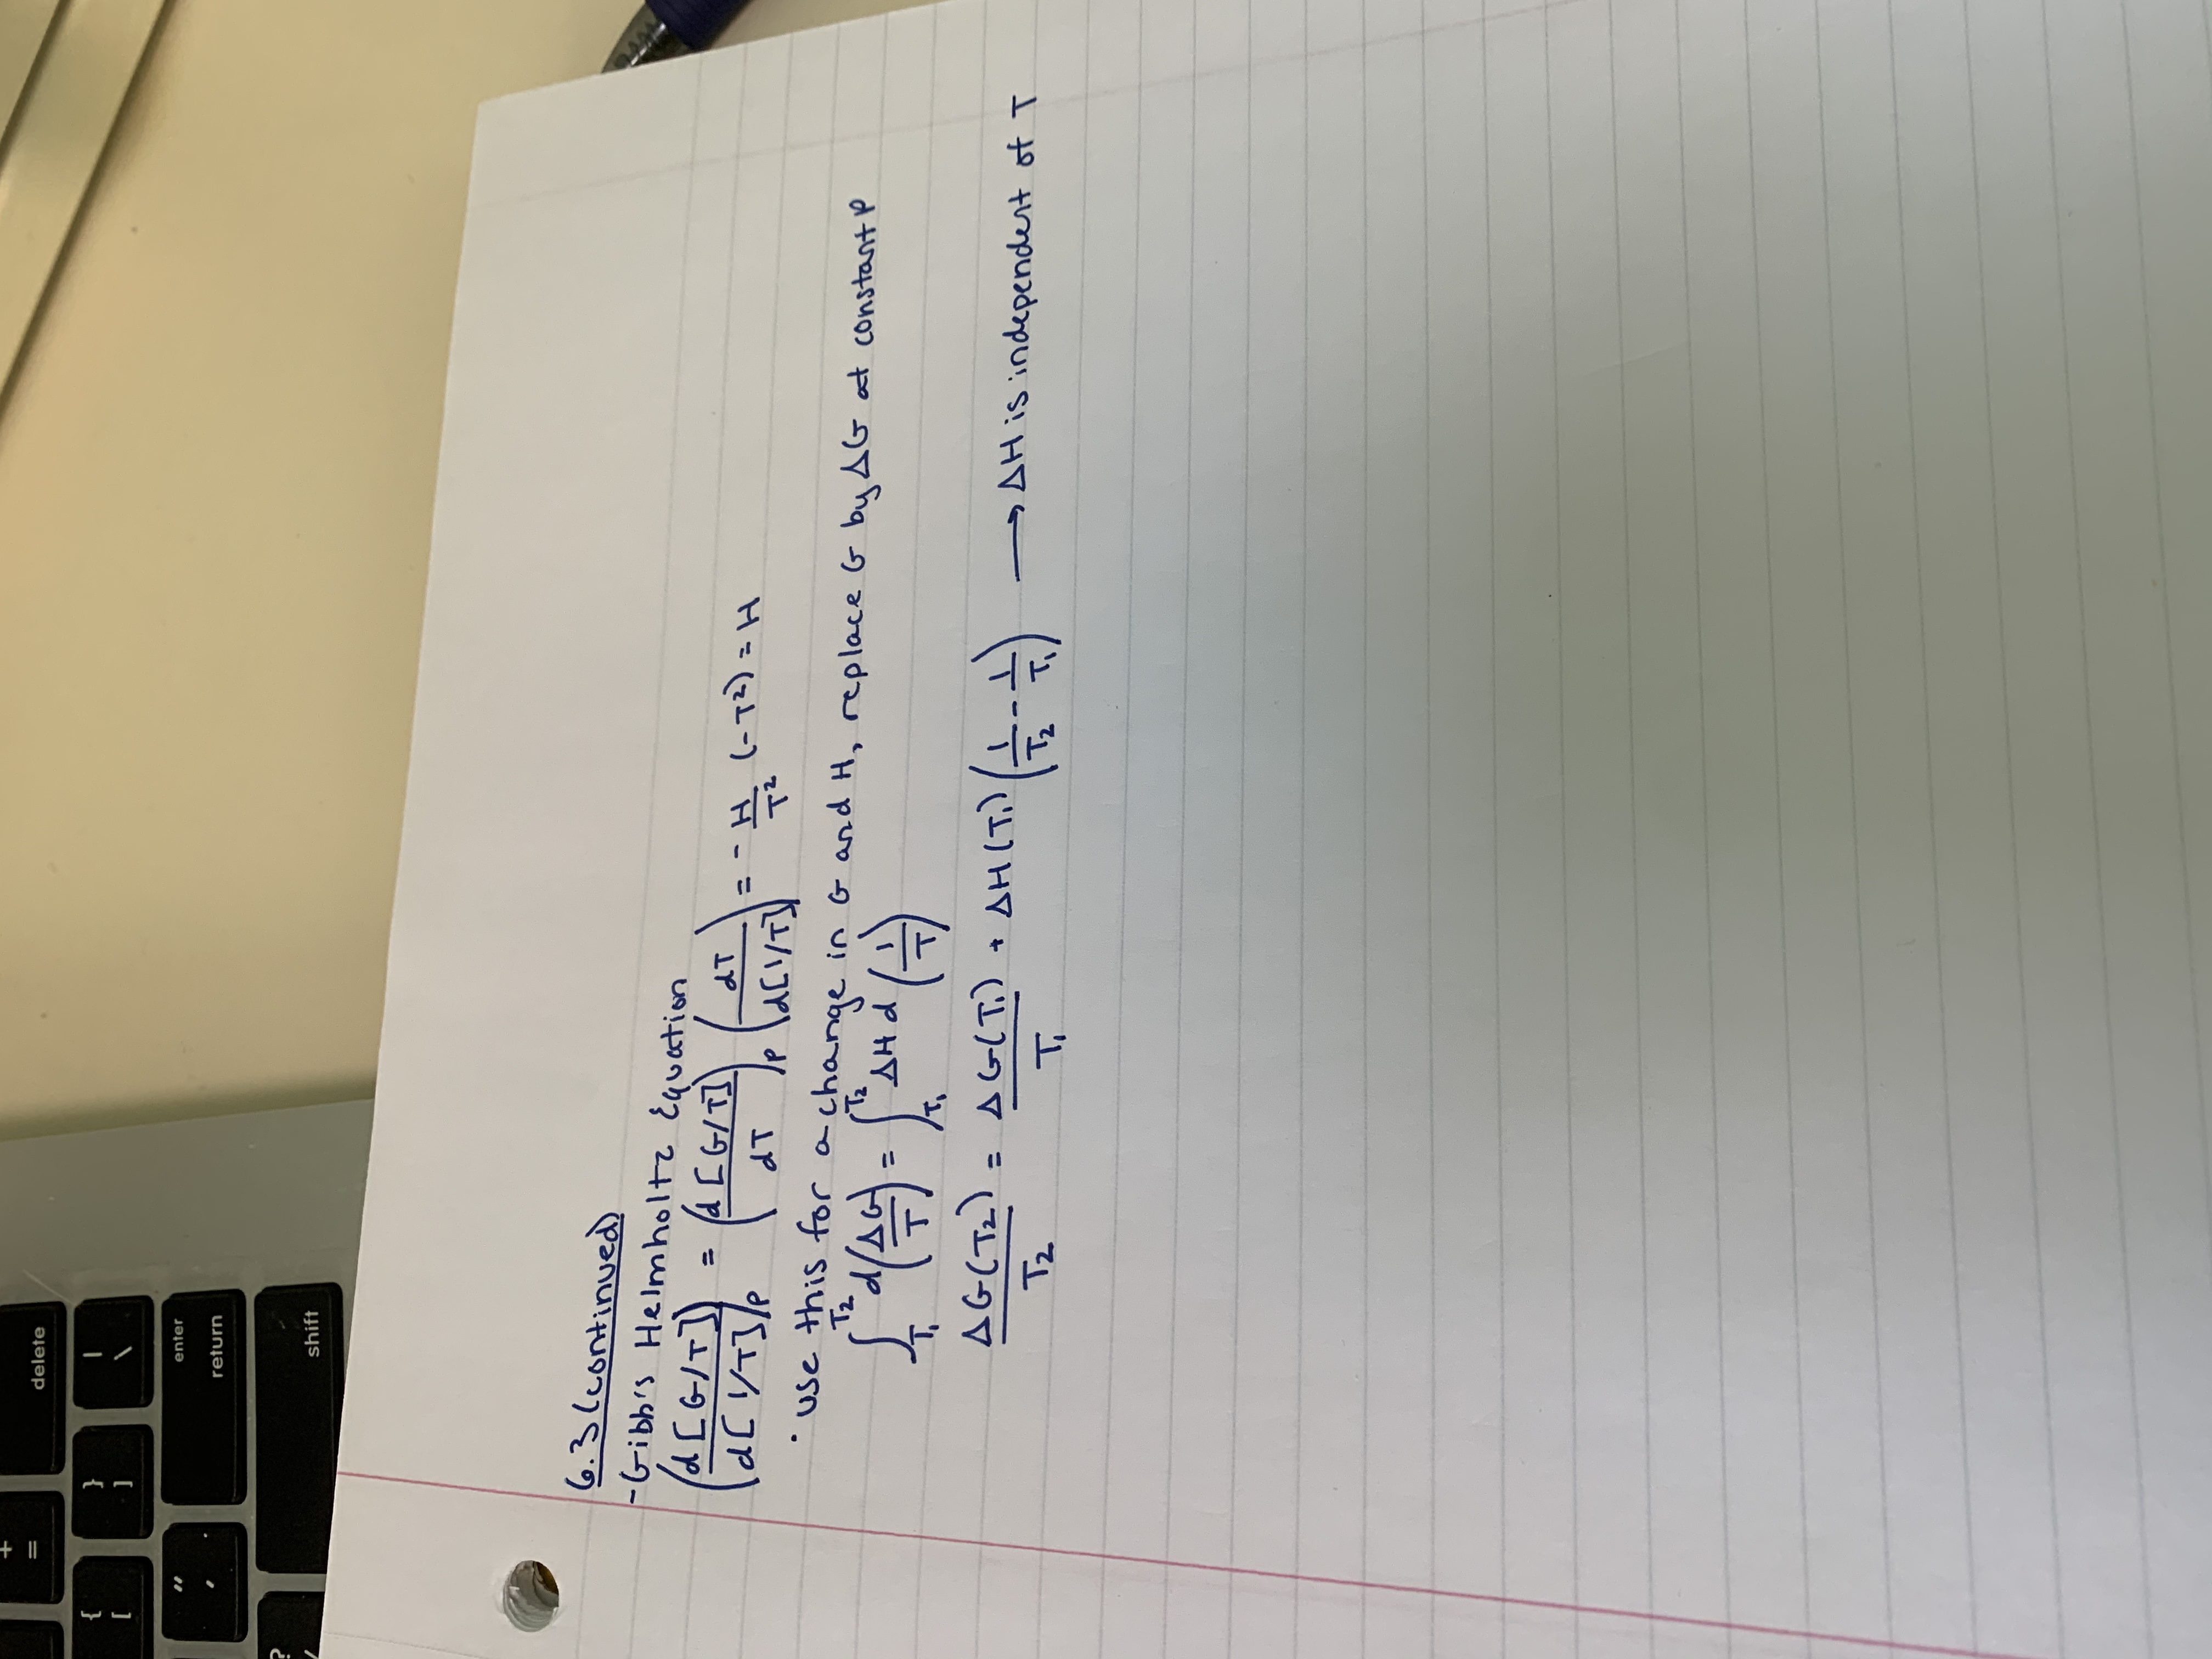 +
=
delete
{
[
}
]
|
\
"
'
enter
return
?
/
shift
6.3 (continued)
- Gibb's Helmholtz Equation
(d[G/T]/d[1/T])P = (d[G/T]/dT)P (dT/d[1/T]) = - H/T² (-T²) = H
• use this for a change in G and H, replace G by ΔG at constant P
∫T₁T₂ d(ΔG/T) = ∫T₁T₂ ΔH d(1/T)
ΔG(T₂)/T₂ = ΔG(T₁)/T₁ + ΔH(T₁)(1/T₂ - 1/T₁) → ΔH is independent of T